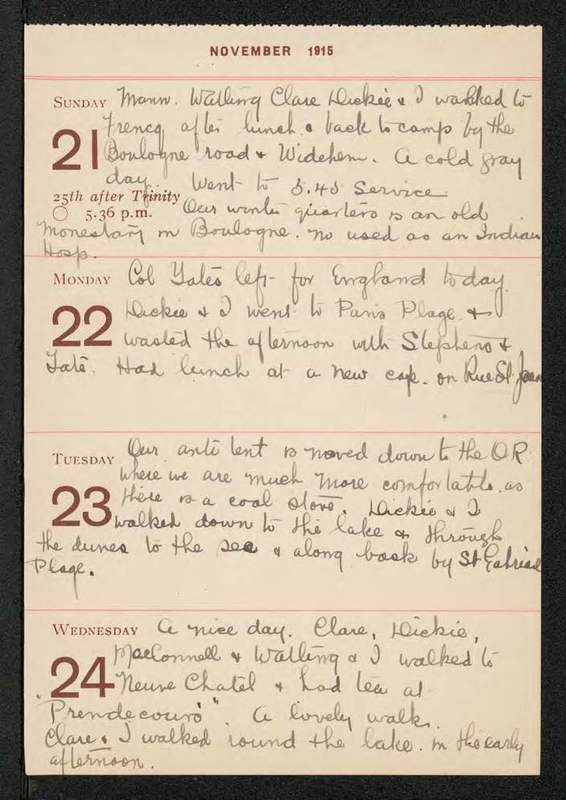 NOVEMBER 1915
SUNDAY Mann. Watling Clare Dickie & I walked to
21 Frencq after lunch & back to camp by the
Boulogne road & Widehem. A cold gray
day. Went to 5.45 Service
25th after Trinity
5.36 p.m. Our winter quarters is an old
Monestary in Boulogne. no used as an Indian
Hosp.
MONDAY Col Yates left for England today.
22 Dickie & I went to Paris Plage &
wasted the afternoon with Stephens &
Tate. Had lunch at a new cafe. on Rue St Jean
TUESDAY Our anti tent is moved down to the OR
where we are much more comfortable. as
23 there is a coal stove. Dickie & I
walked down to the lake & through
the dunes to the sea & along back by St Gabriel
Plage.
WEDNESDAY A nice day. Clare, Dickie,
MacConnell & Watling & I walked to
24 Neuve Chatel & had tea at
"Prendecours". A lovely walk.
Clare & I walked round the lake. in the early
afternoon.